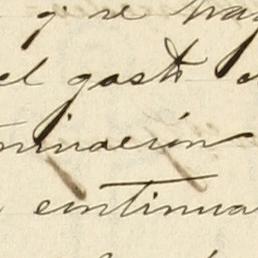 y se
el gasto
minación
continua